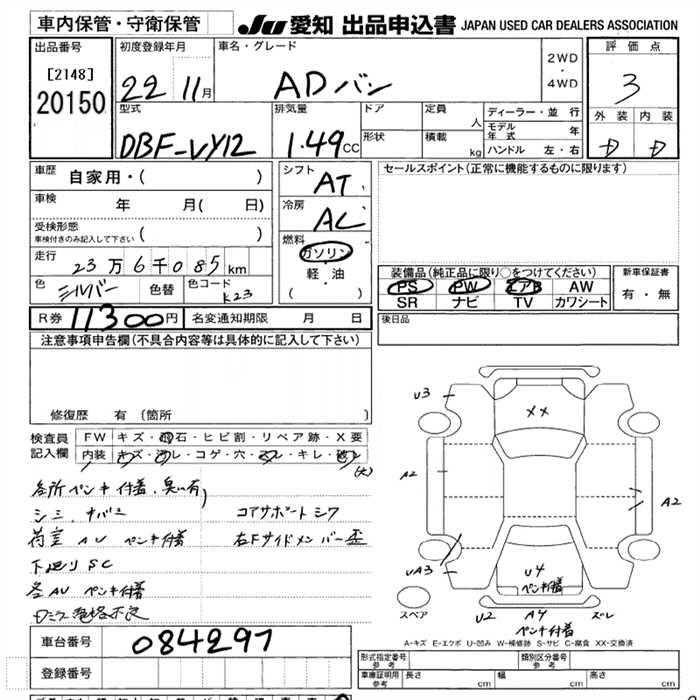 車内保管・守衛保管 JU 愛知 出品申込書 JAPAN USED CAR DEALERS ASSOCIATION
出品番号 初度登録年月 車名・グレード 評価点
[2148] 22 11月 ADバン 2WD・4WD 3
20150 型式 排気量 ドア 定員 人 ディーラー・並行 外装 内装
DBF-VY12 1.49CC 形状 積載 kg モデル年式 年 D D
ハンドル 左・右
車歴 自家用・( ) シフト AT セールスポイント(正常に機能するものに限ります)
車検 年 月( 日) 冷房 AC
受検形態 ( )
車検付きのみ記入して下さい
燃料 ガソリン
走行 23万6千085km 軽・油 装備品(純正品に限り○をつけてください) 新車保証書
色 シルバー 色替 色コード K23 ( ) PS PW エアB AW 有・無
SR ナビ TV カワシート
R券 11300円 名変通知期限 月 日 後日品
注意事項申告欄(不具合内容等は具体的に記入して下さい)
修復歴 有(箇所 )
検査員 FW キズ・飛石・ヒビ割・リペア跡・X要
記入欄 内装 キズ・汚レ・コゲ・穴・スレ・キレ・破レ
(大)
各所ペンキ付着、臭い有
コアサポートシワ
荷室 AU ペンキ付着 右Fサイドメンバー歪
下廻りSC
各AU ペンキ付着
U3 XX A2 A2 UA3
U4 ペンキ付着
スペア U2 A4 ズレ
ペンキ付着
A-キズ E-エクボ U-凹み W-補修跡 S-サビ C-腐食 XX-交換済
車台番号 084297 形式指定番号 参考 類別区分番号 参考
登録番号 車庫証明用 参考 長さ cm 幅 cm 高さ cm